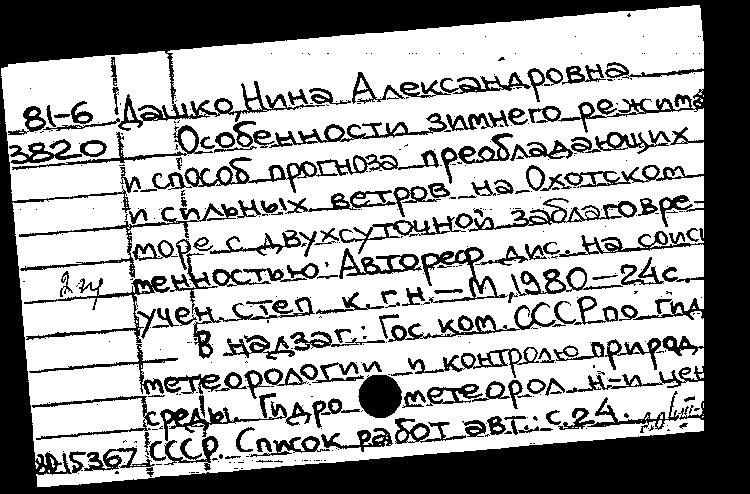 81-6 Дашко, Нина Александровна
3820 Особенности зимнего режима
и способ прогноза преобладающих
и сильных ветров на Охотском
море с двухсуточной заблаговре-
менностью: Автореф. дис. на соиск
учен. степ. к.г.н. — М, 1980 — 24с.
В надзаг.: Гос. ком. СССР по гид
метеорологии и контролю природ.
среды. Гидрометеорол. н-и цен
СССР. Список работ авт.: с.24.
80-15367